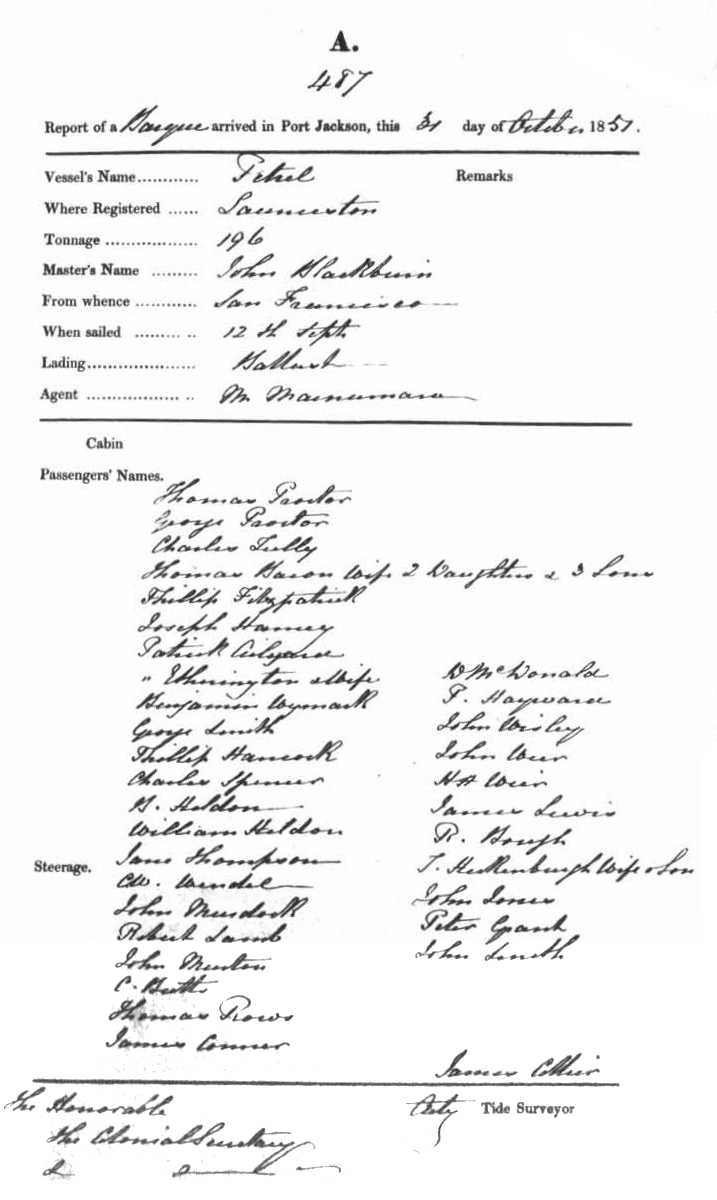 A.
487
Report of a Barque arrived in Port Jackson, this 31 day of October 1851.
Vessel's Name............ Petrel Remarks
Where Registered ...... Launceston
Tonnage .................. 196
Master's Name ......... John Blackburn
From whence ............ San Francisco
When sailed ......... .. 12th Sept
Lading..................... Ballast
Agent .................. .. Mr
Cabin
Passengers' Names.
Thomas Proctor
George Proctor
Charles Tully
Thomas Bacon Wife 2 Daughters & 3 Sons
Phillip Fitzpatrick
Joseph Harney
Patrick
" Etherington & Wife
Benjamin Wymark
George Smith
Phillip Hancock
Charles Spencer
B. Heldon
William Heldon
Steerage. Jane Thompson
CW. Wendel
John Murdock
Robert Lamb
John Menton
C. Butts
Thomas Rows
James Conner
D McDonald
P. Hayward
John Wisley
John Weir
HH Weir
James Lewis
R. Bough
T. Heckenburgh Wife & Son
John Jones
Peter Grant
John Smith
James Collier
Actg Tide Surveyor
The Honorable
The Colonial Secretary